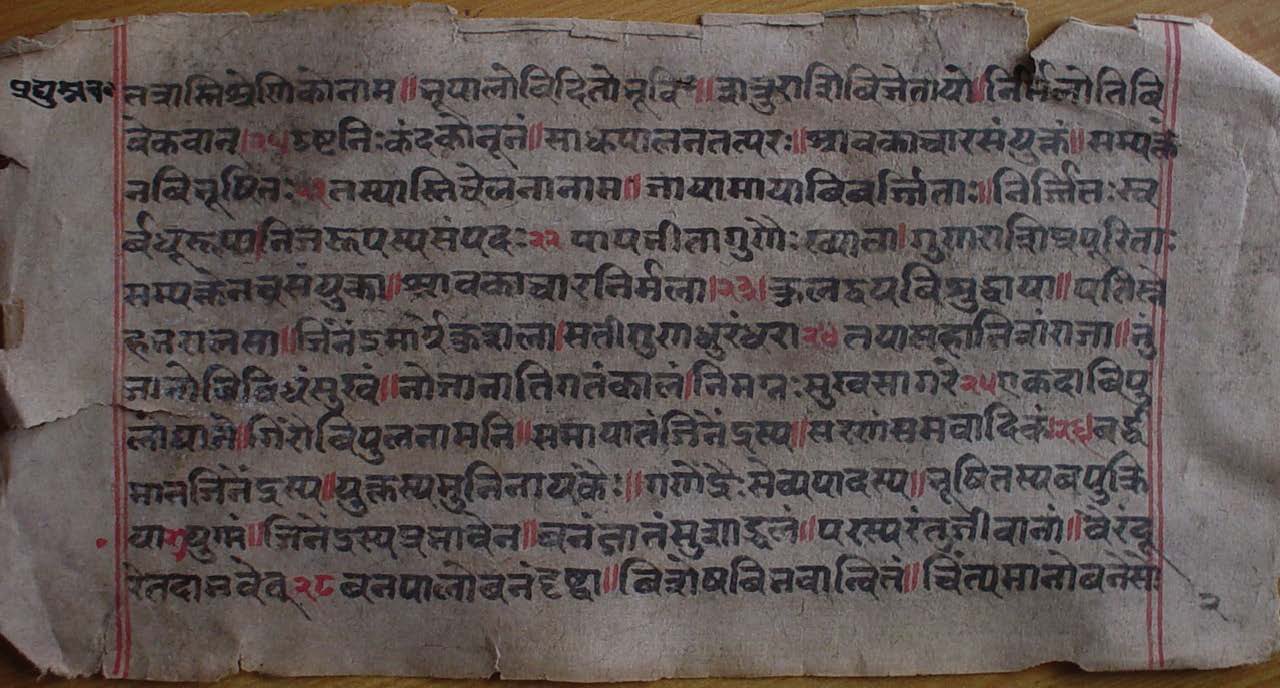 प्रद्युम्नच०
तत्रास्तिश्रेणिकोनाम॥भूपालोविदितोभूवि॥शत्रुराशिविजेतायो॥निर्मलोतिवि
वेकवान्।२५दुष्टनिःकंदकोनूनं॥साधुपालनतत्परः॥श्रावकाचारसंयुक्तं॥सम्यक्त्वे
नविभूषितः२१तस्यास्तिचेलनानाम॥जायामायाविवर्जिताः॥निर्जितःस्व
र्बधूरूपा।निजरूपस्यसंपदः२२पापभीतागुणैःख्याता।गुणराशिप्रपूरिताः
सम्यक्त्वेनवसंयुक्ता॥श्रावकाचारनिर्मला।२३।कुलद्वयविशुद्धाया॥पतिस्ने
हभरालसा॥जिनेंद्रमार्गकुशला।सतीगुणधुरंधरा२४तयासहातिशंराजा॥भुं
जानोत्रिविधंसुखं॥नोजानातिगतंकालं।निमग्नःसुखसागरे२५एकदाविपु
लोद्याने॥गिरोविपुलनामनि॥समायातंजिनेंद्रस्य॥सरणंसमवादिकं।२६।वर्द्ध
मानजिनेंद्रस्य॥युक्तस्यमुनिनायकैः॥गणेंद्रैःसेव्यपादस्य॥भूषितस्यवपुश्रि
या॥युग्मं॥जिनेंद्रस्यप्रभावेन॥बनंजातंसुशाद्वलं॥परस्परंतुजीवानां॥वैरंदू
रेतदाभवेत्२८बनपालोबनंदृष्ट्वा॥विशेषविनयान्वितं॥चिंत्यमानोवनेसः
२